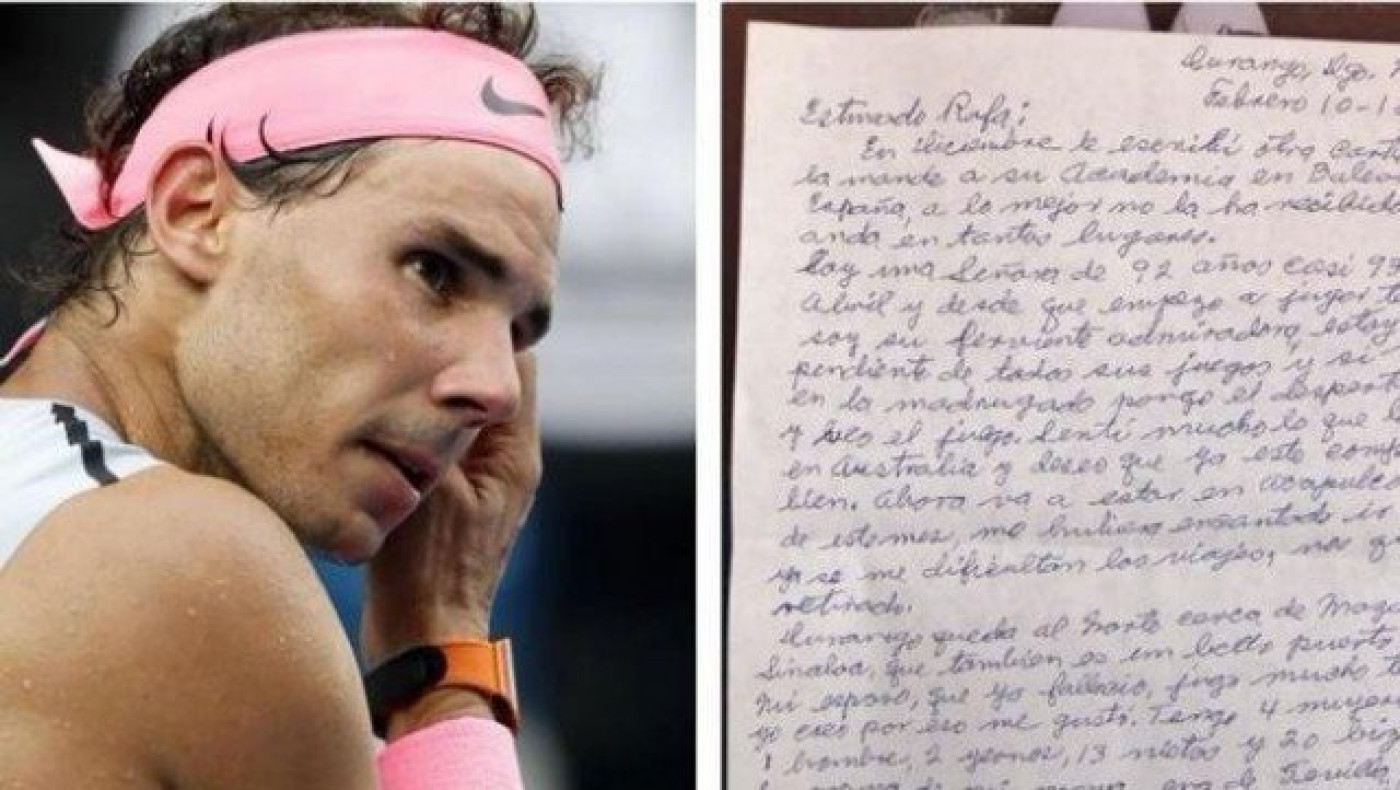 Durango, Dgo.
Febrero 10-1
Estimado Rafa:
En diciembre le escribí otra carta
la mande a su Academia en
España, a lo mejor no la ha recibido
anda en tantos lugares.
Soy una Señora de 92 años casi 93
Abril y desde que empezo a jugar
soy su ferviente admiradora, estoy
pendiente de todos sus juegos y si
en la madrugada pongo el
y veo el juego. Sentí mucho lo que
en Australia y deseo que ya este
bien. Ahora va a estar en
de este mes, me hubiera encantado ir
ya se me dificultan los viajes,
retirado.
Durango queda al Norte cerca de
Sinaloa, que tambien es un bello puerto
Mi esposo, que ya fallecio, jugo mucho
yo creo por eso me gustó. Tengo 4
1 hombre, 2 yernos, 13 nietos y 20